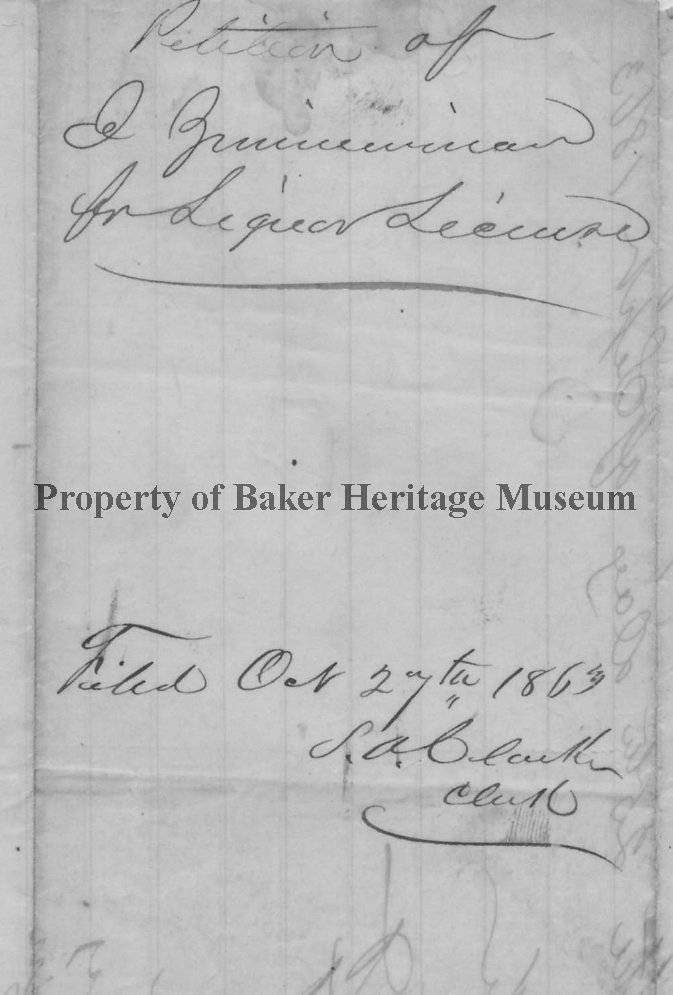 Petition of
I Zimmerman
for Liquor License
Property of Baker Heritage Museum
Filed Oct 27th 1863
S. A. Clarke
Clerk